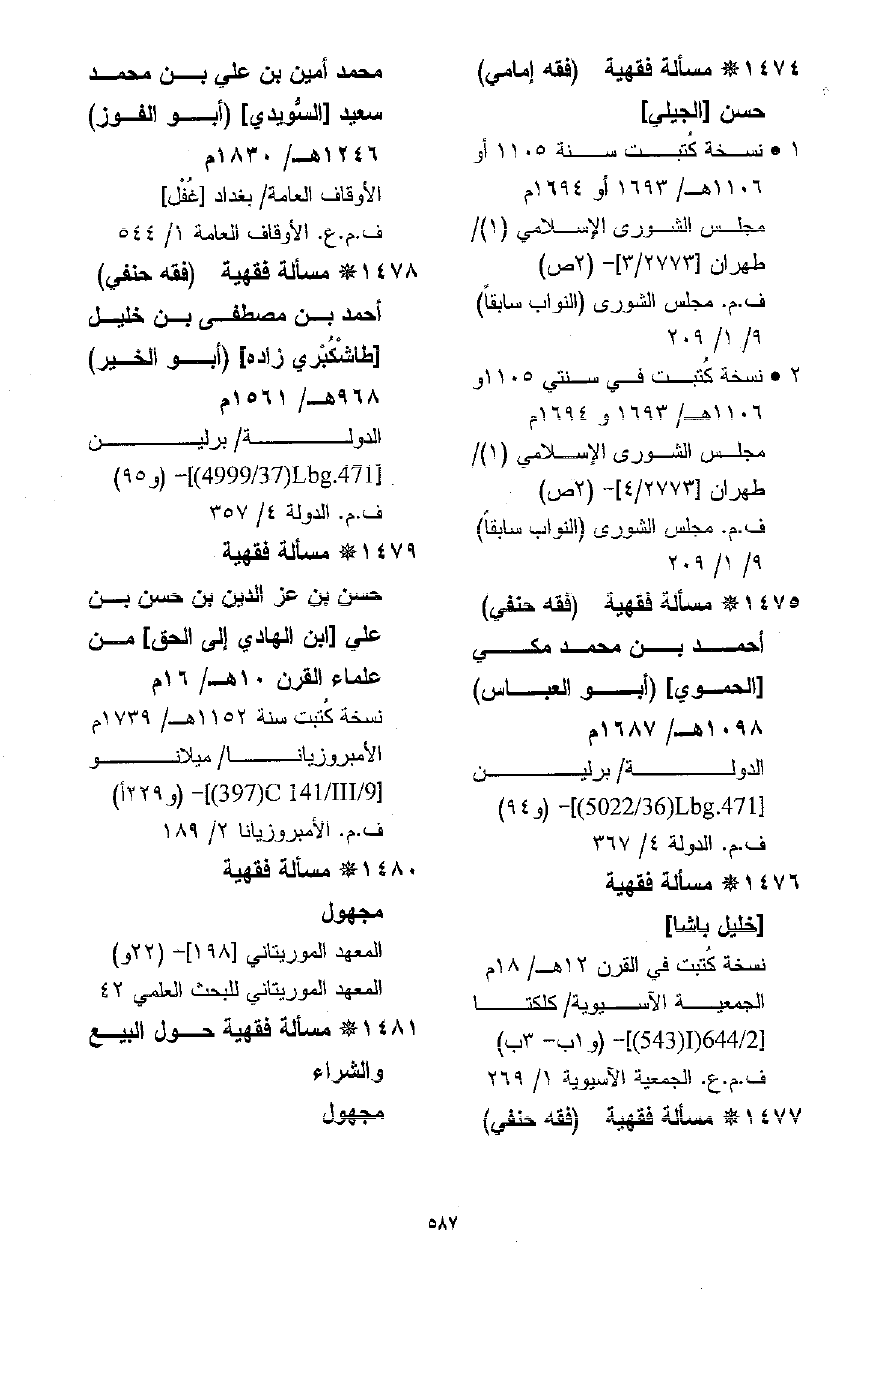 ١٤٧٤ ❋ مسألة فقهية (فقه إمامي)
حسن [الجيلي]
١ • نسخة كُتبت سنة ١١٠٥ أو
١١٠٦هـ/ ١٦٩٣ أو ١٦٩٤م
مجلس الشورى الإسلامي (١)/
طهران [٣/٢٧٧٣]- (٢ص)
ف.م. مجلس الشورى (النواب سابقاً)
٩/ ١/ ٢٠٩
٢ • نسخة كُتبت في سنتي ١١٠٥و
١١٠٦هـ/ ١٦٩٣ و ١٦٩٤م
مجلس الشورى الإسلامي (١)/
طهران [٤/٢٧٧٣]- (٢ص)
ف.م. مجلس الشورى (النواب سابقاً)
٩/ ١/ ٢٠٩
١٤٧٥ ❋ مسألة فقهية (فقه حنفي)
أحمد بن محمد مكي
[الحموي] (أبو العباس)
١٠٩٨هـ/ ١٦٨٧م
الدولة/ برلين
[5022/36)Lbg.471)]- (و٩٤)
ف.م. الدولة ٤/ ٣٦٧
١٤٧٦ ❋ مسألة فقهية
[خليل باشا]
نسخة كُتبت في القرن ١٢هـ/ ١٨م
الجمعية الآسيوية/ كلكتا
[543)I)644/2)]- (و ١ب- ٣ب)
ف.م.ع. الجمعية الآسيوية ١/ ٢٦٩
١٤٧٧ ❋ مسألة فقهية (فقه حنفي)
محمد أمين بن علي بن محمد
سعيد [السُّويدي] (أبو الفوز)
١٢٤٦هـ/ ١٨٣٠م
الأوقاف العامة/ بغداد [غُفْل]
ف.م.ع. الأوقاف العامة ١/ ٥٤٤
١٤٧٨ ❋ مسألة فقهية (فقه حنفي)
أحمد بن مصطفى بن خليل
[طاشْكُبْري زاده] (أبو الخير)
٩٦٨هـ/ ١٥٦١م
الدولة/ برلين
[4999/37)Lbg.471)]- (و٩٥)
ف.م. الدولة ٤/ ٣٥٧
١٤٧٩ ❋ مسألة فقهية
حسن بن عز الدين بن حسن بن
علي [ابن الهادي إلى الحق] من
علماء القرن ١٠هـ/ ١٦م
نسخة كُتبت سنة ١١٥٢هـ/ ١٧٣٩م
الأمبروزيانا/ ميلانو
[397)C 141/III/9)]- (و٢٢٩أ)
ف.م. الأمبروزيانا ٢/ ١٨٩
١٤٨٠ ❋ مسألة فقهية
مجهول
المعهد الموريتاني [١٩٨]- (٢٢و)
المعهد الموريتاني للبحث العلمي ٤٢
١٤٨١ ❋ مسألة فقهية حول البيع
والشراء
مجهول
٥٨٧